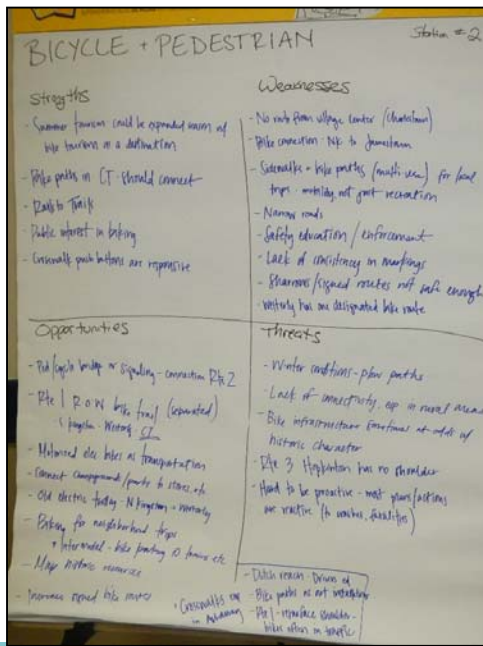 BICYCLE + PEDESTRIAN
Station #2
Strengths
- Summer tourism could be expanded
bike tourism as a destination
- Bike paths in CT - should connect
- Rails to Trails
- Public interest in biking
- Crosswalk push buttons are responsive
Weaknesses
- No route from village center
- Bike connection - NK to Jamestown
- Sidewalks + bike paths (multi-use) for local
trips - mobility not just recreation
- Narrow roads
- Safety education / enforcement
- Lack of consistency in markings
- Sharrows/signed routes not safe enough
- Westerly has one designated bike route
Opportunities
- Ped/cycle bridge or signaling - connection Rte 2
- Rte 1 ROW bike trail (separated)
Kingston - Westerly CT
- Motorized elec bikes as transportation
- Connect campgrounds/parks to stores, etc
- Old electric - N Kingston - Westerly
- Biking for neighborhood trips
+ Intermodal - bike parking @ etc
- Map historic resources
- Increase signed bike routes
Threats
- Winter conditions - plow paths
- Lack of connectivity, esp in rural areas
- Bike infrastructure at odds w/
historic character
- Rte 3 Hopkinton has no shoulder
- Hard to be proactive - most plans/actions
are reactive (to crashes, fatalities)
- Dutch reach - Driver ed
- Bike paths as
- Rte 1 - shoulder -
bikes often in traffic
* Crosswalks
in